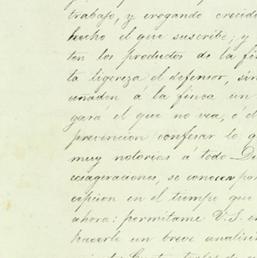 trabajo, y erogando crecido
hecho el que suscribe; y
ten los productos de la fi
la ligereza el defensor, sin
añaden á la finca un
gará el que no vea, ó d
prevencion confesar lo q
muy notorios á todo D
exageraciones, se conocen por
cipcion en el tiempo que
ahora: permítame V.S. en
hacerle un breve analisis